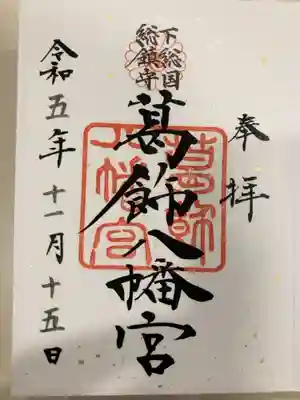 奉拝
下総国
総鎮守
葛飾八幡宮
葛飾
八幡宮
令和五年十一月十五日